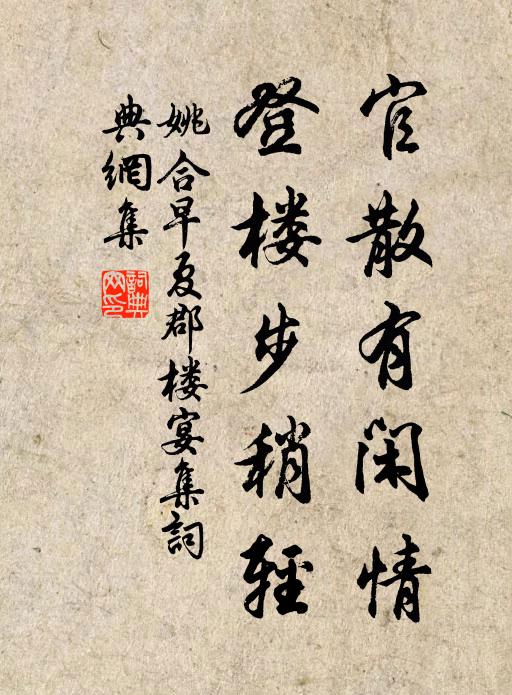 官散有闲情
登楼步稍轻
姚合早夏郡楼宴集詞
典網集
詞典网印